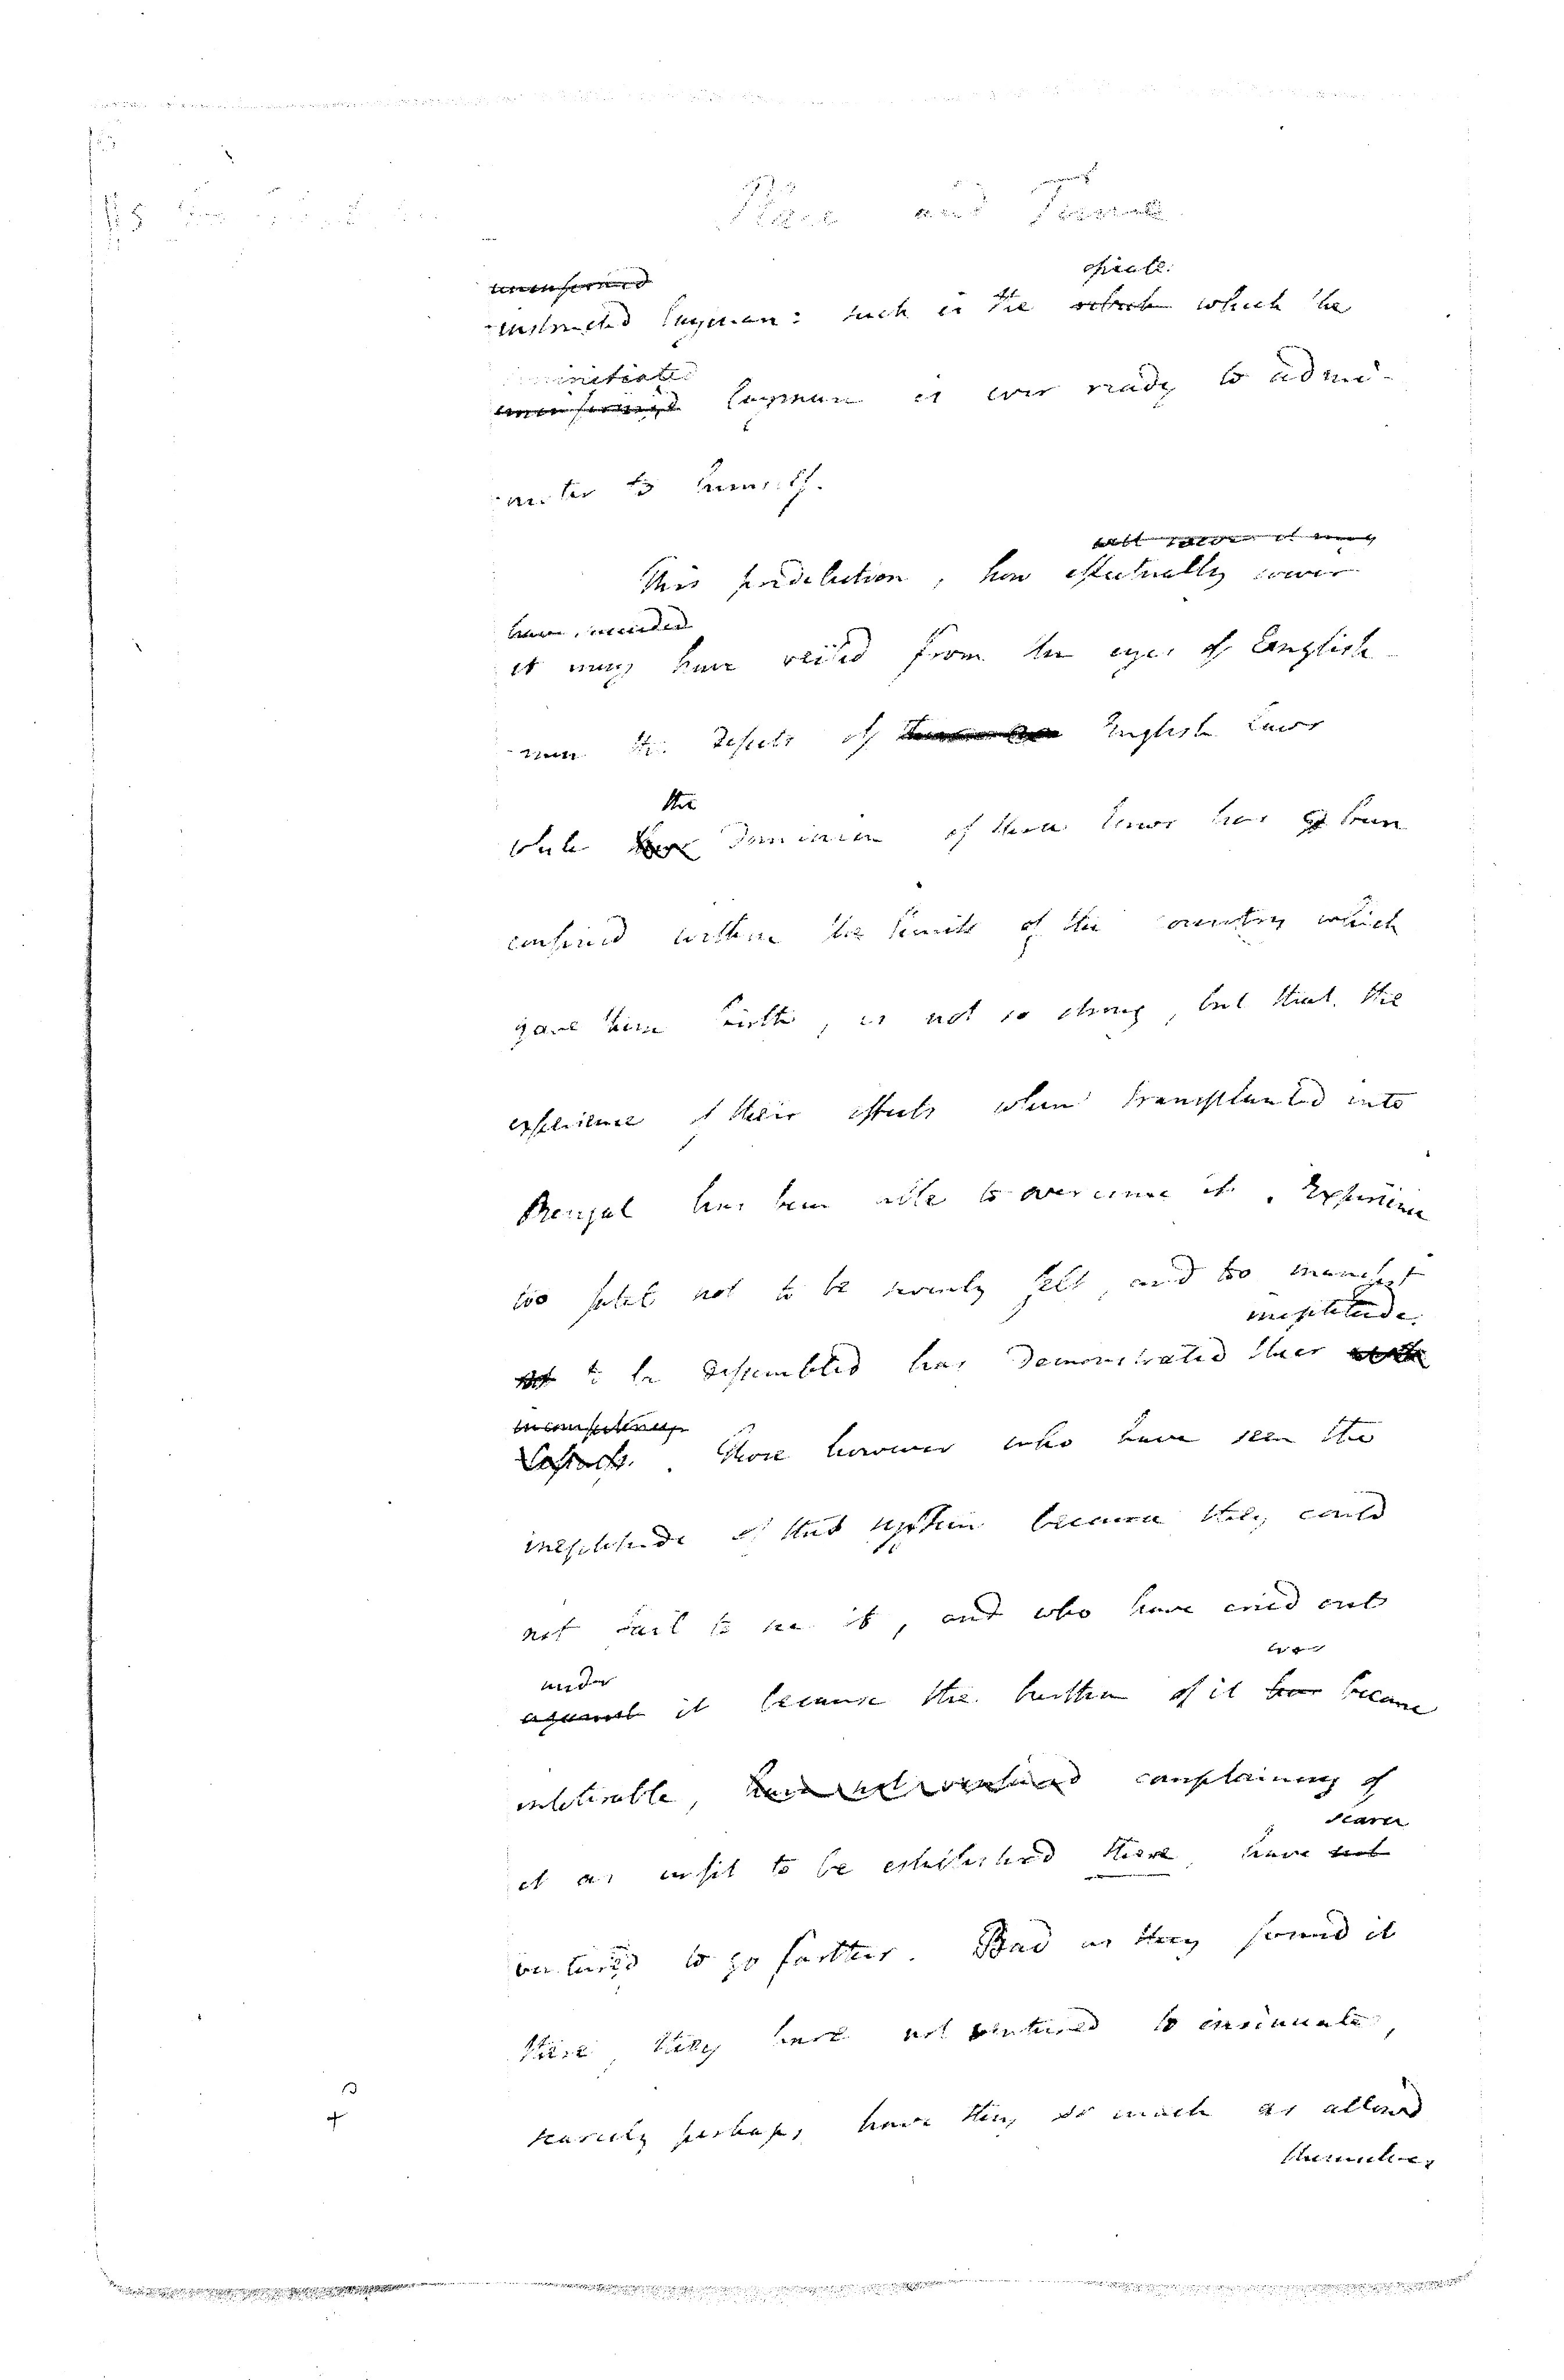 Place and Time
uninformed opiate.
instructed layman: such is the which which the
uninitiated
uninformed layman is ever ready to admi-
nister to himself.
it may
This predilection, how effectually soever
have
it may have veiled from the eyes of English-
men the defects of English Laws
the
while dominion of these laws has been
confined within the limits of the country which
gave them birth, is not so strong, but that the
experience of their effects when transplanted into
Bengal has been able to overcome it. Experience
too fatal not to be severely felt, and too manifest
ineptitude.
not to be dissembled has demonstrated their
Those however who have seen the
ineptitude of that system because they could
not fail to see it, and who have cried out
under was
against it because the burthen of it has became
intolerable, have not ventured complaining of
scarce
it as unfit to be established there, have not
ventured to go farther. Bad as they found it
there, they have not ventured to insinuate,
scarcely perhaps have they so much as allowed
themselves